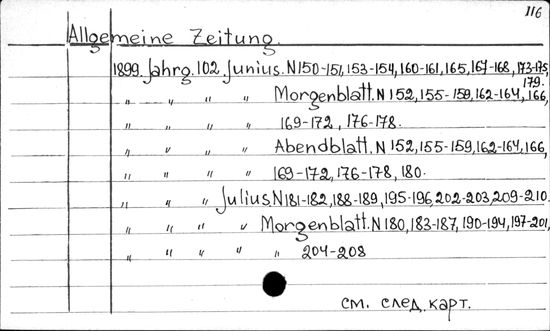 116
Allgemeine Zeitung.
1899. Jahrg. 102. Junius. N 150-151, 153-154, 160-161, 165, 167-168, 173-175,
179.
" " " " Morgenblatt. N 152, 155-159, 162-164, 166,
" " " " 169-172, 176-178.
" " " " Abendblatt. N 152, 155-159, 162-164, 166,
" " " " 169-172, 176-178, 180.
" " " Julius N 181-182, 188-189, 195-196, 202-203, 209-210.
" " " " Morgenblatt. N 180, 183-187, 190-194, 197-201,
" " " " 204-208
см. след. карт.